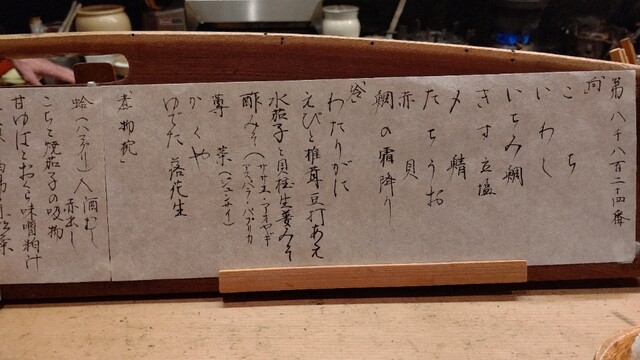 第八千八百二十四番
向
こち
いわし
いちみ鯛
きす立塩
〆鯖
たちうお
赤貝
鯛の霜降り
冷
わたりがに
えびと椎茸豆打あえ
水茄子と貝柱生姜みそ
酢みそ(サザエ・アオヤギ アスパラ・パプリカ)
蓴菜(ジュンサイ)
かくや
ゆでた落花生
煮物椀
蛤(ハマグリ)酒むし 赤出し
こちと焼茄子の吸物
甘ゆばとおくら味噌粕汁